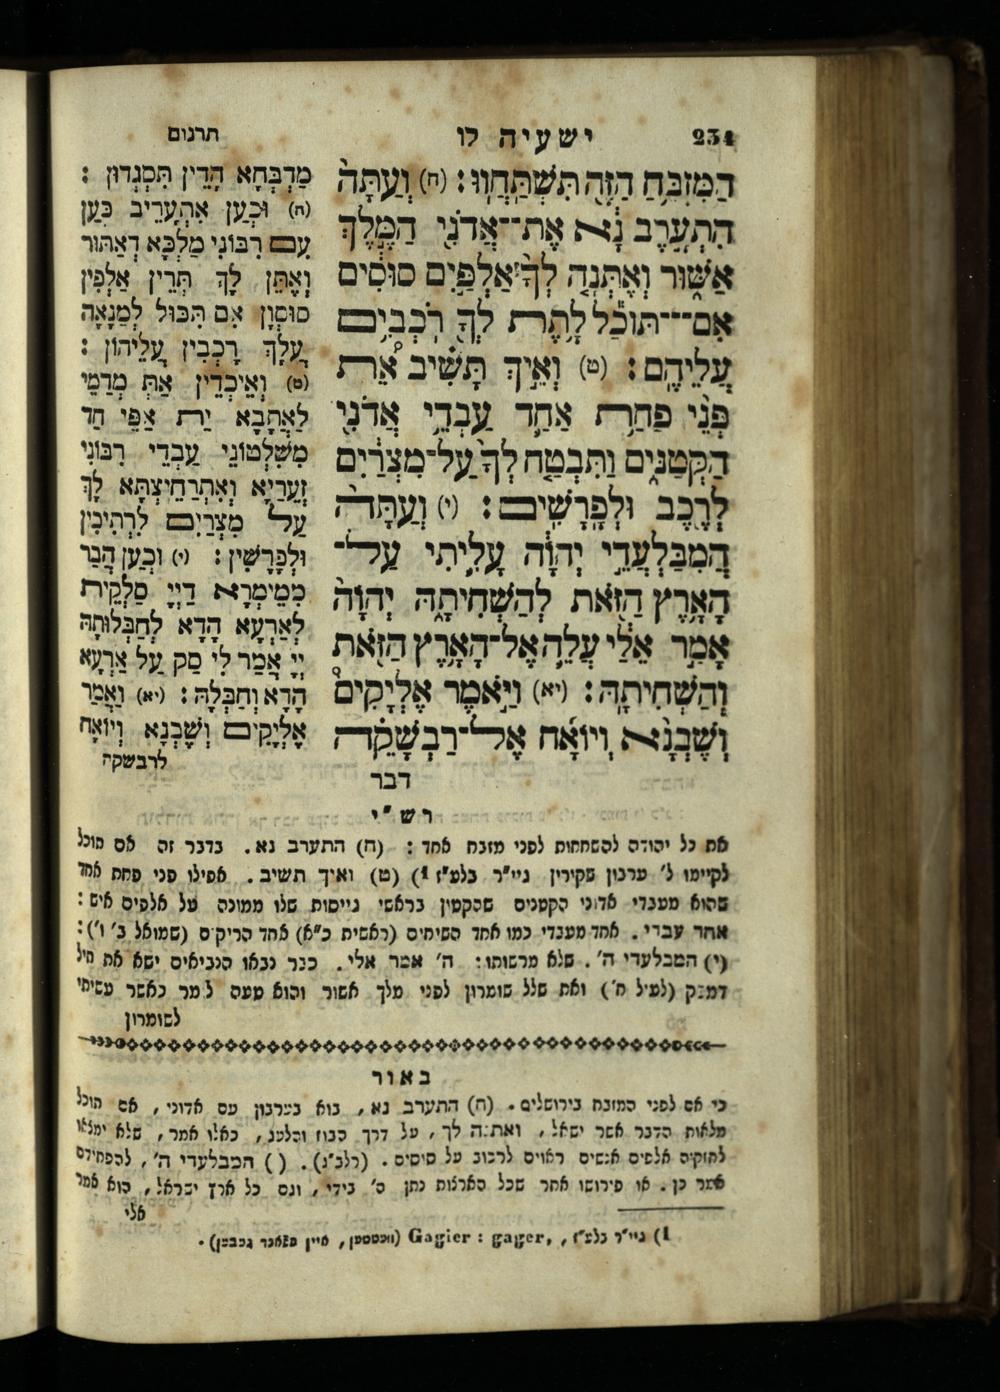 234
ישעיה לו
תרגום
הַמִּזְבֵּחַ הַזֶּה תִּשְׁתַּחֲווּ׃ (ח) וְעַתָּה
הִתְעָרֶב נָא אֶת־אֲדֹנִי הַמֶּלֶךְ
אַשּׁוּר וְאֶתְּנָה לְךָ אַלְפַּיִם סוּסִים
אִם־תּוּכַל לָתֶת לְךָ רֹכְבִים
עֲלֵיהֶם׃ (ט) וְאֵיךְ תָּשִׁיב אֵת
פְּנֵי פַחַת אַחַד עַבְדֵי אֲדֹנִי
הַקְּטַנִּים וַתִּבְטַח לְךָ עַל־מִצְרַיִם
לְרֶכֶב וּלְפָרָשִׁים׃ (י) וְעַתָּה
הֲמִבַּלְעֲדֵי יְהוָה עָלִיתִי עַל־
הָאָרֶץ הַזֹּאת לְהַשְׁחִיתָהּ יְהוָה
אָמַר אֵלַי עֲלֵה אֶל־הָאָרֶץ הַזֹּאת
וְהַשְׁחִיתָהּ׃ (יא) וַיֹּאמֶר אֶלְיָקִים
וְשֶׁבְנָא וְיוֹאָח אֶל־רַבְשָׁקֵה
דבר
מַדְבְּחָא הָדֵין תִּסְגְּדוּן׃
(ח) וּכְעַן אִתְעָרֵיב כְּעַן
עִם רִבּוֹנִי מַלְכָּא דְאַתּוּר
וְאֶתֵּן לָךְ תְּרֵין אַלְפִין
סוּסְוָן אִם תִּכּוּל לְמַנָּאָה
עֲלָךְ רָכְבִין עֲלֵיהוֹן׃
(ט) וְאֵיכְדֵין אַתְּ מְדַמֵּי
לַאֲתָבָא יַת אַפֵּי חַד
מִשִּׁלְטוֹנֵי עַבְדֵי רִבּוֹנִי
זְעֵרַיָּא וְאִתְרַחֵיצְתָּא לָךְ
עַל מִצְרַיִם לִרְתִיכִין
וּלְפָרָשִׁין׃ (י) וּכְעַן הֲבַר
מִמֵּימְרָא דַיְיָ סַלְקֵית
לְאַרְעָא הָדָא לְחַבְּלוּתַהּ
יְיָ אֲמַר לִי סַק עַל אַרְעָא
הָדָא וְחַבְּלָהּ׃ (יא) וַאֲמַר
אֶלְיָקִים וְשֶׁבְנָא וְיוֹאָח
לרבשקה
רש"י
את כל יהודה להשתחות לפני מזבח אחד׃ (ח) התערב נא. בדבר זה אם תוכל
לקיימו ל' ערבון פקירין גיי"ר בלע"ז 1) (ט) ואיך תשיב. אפילו פני פחת אחד
שהוא מעבדי אדוני הקטנים שהקטין בראשי גייסות שלו ממונה על אלפים איש׃
אחד עבדי. אחד מעבדי כמו אחד השיחים (ראשית כ"א) אחד הריקים (שמואל ב' ו')׃
(י) המבלעדי ה'. שלא מרשותו׃ ה' אמר אלי. כבר נבאו הנביאים ישא את חיל
דמשק (לעיל ח') ואת שלל שומרון לפני מלך אשור והוא טעם לומר כאשר עשיתי
לשומרון
באור
כי אם לפני המזבח בירושלים. (ח) התערב נא, בוא בערבון עם אדוני, אם תוכל
מלאות הדבר אשר ישאל, ואתנה לך, על דרך הבוז והלעג, כאלו אמר, שלא ימלאו
לחזקיה אלפים אנשים ראוים לרכוב על סוסים. (רלב"ג). (י) המבלעדי ה', להפחידם
אמר כן. או פירושו אחר שכל הארצות נתן ה' בידי, וגם כל ארץ ישראל, הוא אמר
אלי
1) גיי"ר בלע"ז, Gagier : gager, (וועטטען, איין פפאנד געבען).